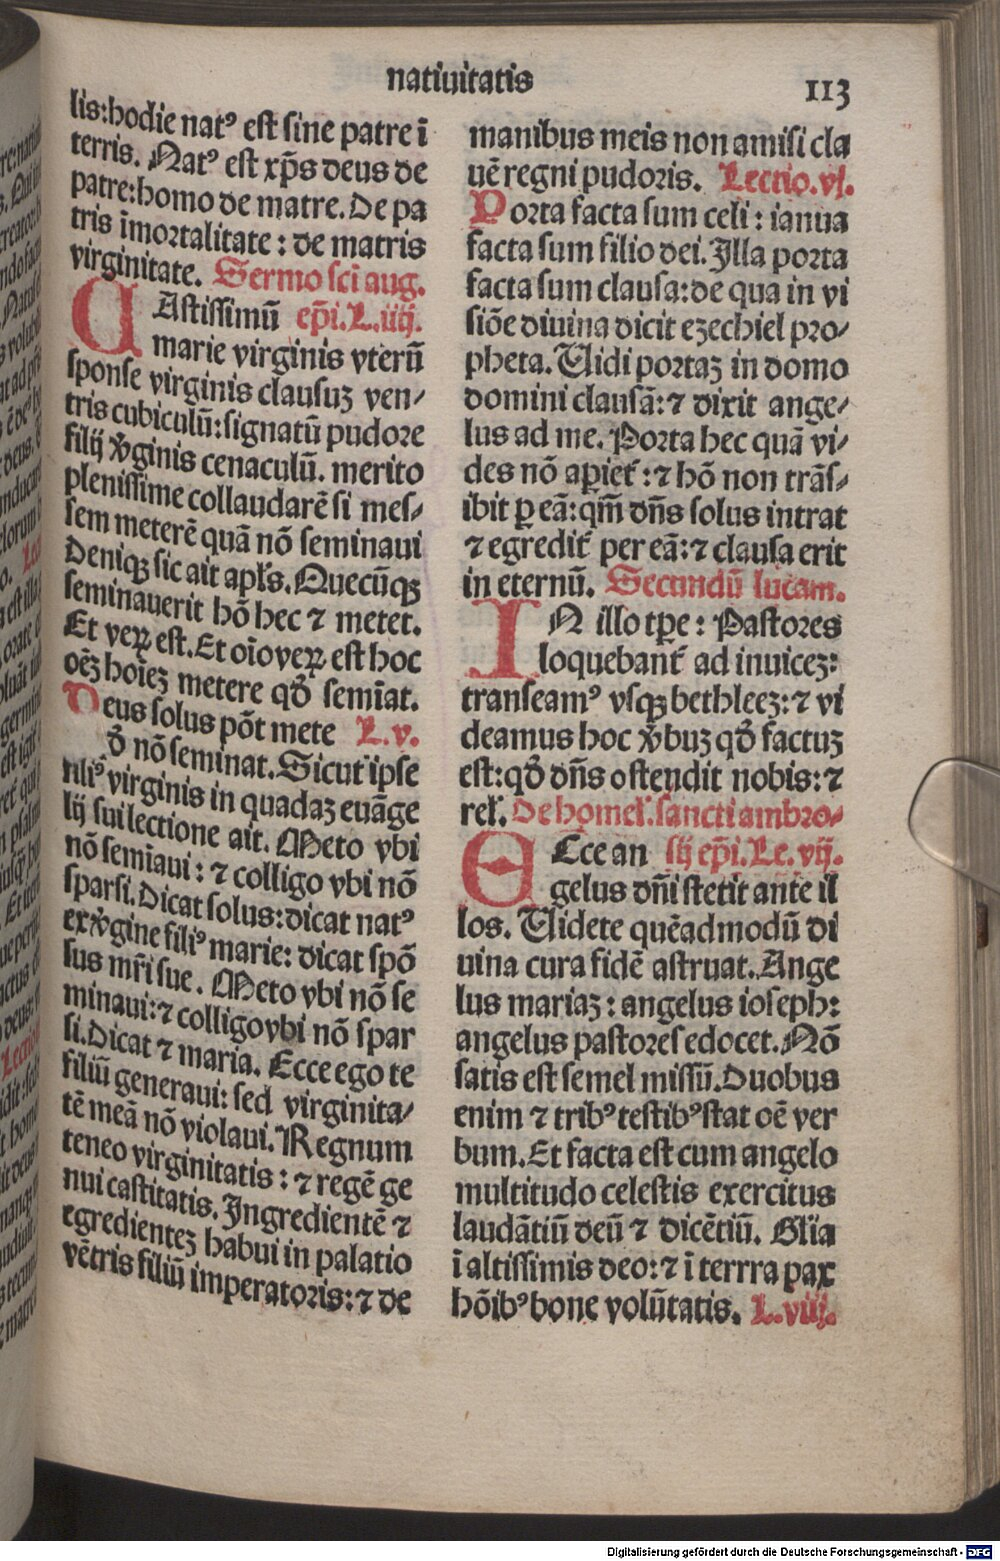 natiuitatis
113
lis:hodie natꝰ est sine patre ī
terris. Natꝰ est xp̄s deus de
patre:homo de matre. De pa
tris īmortalitate : de matris
virginitate. Sermo sci aug.
CAstissimū ep̄i.L.iiij.
marie virginis vterū
sponse virginis clausuꝫ ven⸗
tris cubiculū:signatū pudore
filij v̾ginis cenaculū. merito
plenissime collaudarē si mes⸗
sem meterē quā nō seminaui
Deniqꝫ sic ait apl̄s. Quecūqꝫ
seminauerit hō hec ⁊ metet.
Et veꝝ est. Et oīo veꝝ est hoc
oēꝫ hoīeꝫ metere qd̄ semīat.
Deus solus pōt mete L.v.
d̄ nō seminat. Sicut ip̄se
filiꝰ virginis in quadaꝫ euāge
lij sui lectione ait. Meto vbi
nō semīaui : ⁊ colligo vbi nō
sparsi. Dicat solus:dicat natꝰ
ex v̾gine filiꝰ marie: dicat spō
sus mr̄i sue. Meto vbi nō se
minaui:⁊ colligo vbi nō spar
si. Dicat ⁊ maria. Ecce ego te
filiū generaui: sed virginita⸗
tē meā nō violaui. Regnum
teneo virginitatis : ⁊ regē ge
nui castitatis. Ingredientē ⁊
egredienteꝫ habui in palatio
vētris filiū imperatoris:⁊ de
manibus meis non amisi cla
uē regni pudoris. Lectio.vj.
Porta facta sum celi : ianua
facta sum filio dei. Illa porta
facta sum clausa:de qua in vi
siōe diuina dicit ezechiel pro⸗
pheta. Vidi portaꝫ in domo
domini clausā:⁊ dixit ange⸗
lus ad me. Porta hec quā vi⸗
des nō aꝑiet̄ : ⁊ hō non trās⸗
ibit ꝑ eā:qm̄ dn̄s solus intrat
⁊ egredit̄ per eā:⁊ clausa erit
in eternū. Secundū lucam.
IN illo tp̄e : Pastores
loquebant̄ ad inuiceꝫ:
transeamꝰ vsqꝫ bethleeꝫ:⁊ vi
deamus hoc v̾buꝫ qd̄ factuꝫ
est:qd̄ dn̄s ostendit nobis:⁊
rel̄. De homel̄. sancti ambro⸗
ECce an sij ep̄i.Le.vij.
gelus dn̄i stetit ante il
los. Videte quēadmodū di
uina cura fidē astruat. Ange
lus mariaꝫ : angelus ioseph:
angelus pastores edocet. Nō
satis est semel missū. Duobus
enim ⁊ tribꝰ testibꝰ stat oē ver
bum. Et facta est cum angelo
multitudo celestis exercitus
laudātiū deū ⁊ dicētiū. Gl̄ia
ī altissimis deo:⁊ ī terrra pax
hōibꝰ bone volūtatis. L.viij.
Digitalisierung gefördert durch die Deutsche Forschungsgemeinschaft - DFG